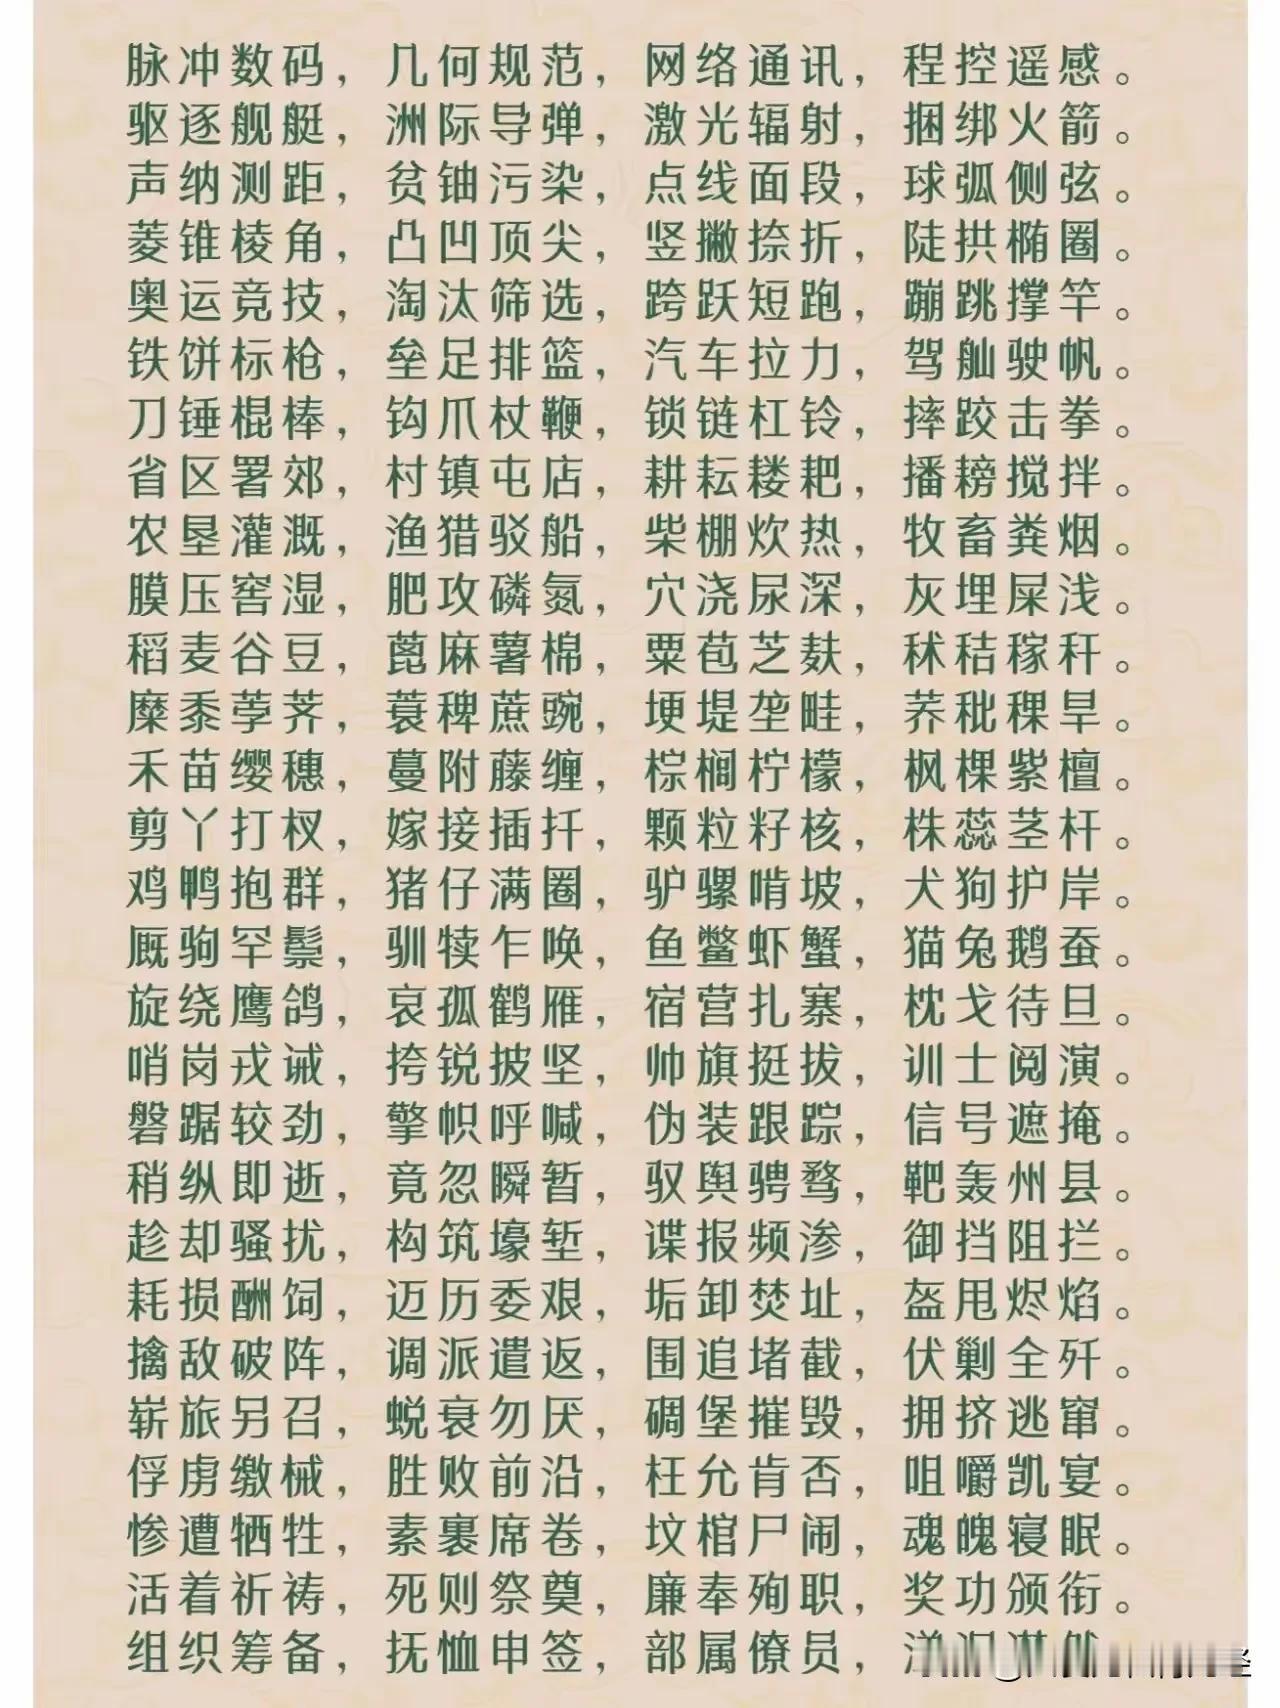 脉冲数码，几何规范，网络通讯，程控遥感。
驱逐舰艇，洲际导弹，激光辐射，捆绑火箭。
声纳测距，贫铀污染，点线面段，球弧侧弦。
菱锥棱角，凸凹顶尖，竖撇捺折，陡拱椭圈。
奥运竞技，淘汰筛选，跨跃短跑，蹦跳撑竿。
铁饼标枪，垒足排篮，汽车拉力，驾舢驶帆。
刀锤棍棒，钩爪杖鞭，锁链杠铃，摔跤击拳。
省区署郊，村镇屯店，耕耘耧耙，播耪搅拌。
农垦灌溉，渔猎驳船，柴棚炊热，牧畜粪烟。
膜压窖湿，肥攻磷氮，穴浇尿深，灰埋屎浅。
稻麦谷豆，蓖麻薯棉，粟苞芝麸，秫秸稼秆。
糜黍荸荠，蓑稗蔗豌，埂堤垄畦，荞秕稞旱。
禾苗缨穗，蔓附藤缠，棕榈柠檬，枫棵紫檀。
剪丫打杈，嫁接插扦，颗粒籽核，株蕊茎杆。
鸡鸭抱群，猪仔满圈，驴骡啃坡，犬狗护岸。
厩驹罕鬃，驯犊乍唤，鱼鳖虾蟹，猫兔鹅蚕。
旋绕鹰鸽，哀孤鹤雁，宿营扎寨，枕戈待旦。
哨岗戎诫，挎锐披坚，帅旗挺拔，训士阅演。
磐踞较劲，擎帜呼喊，伪装跟踪，信号遮掩。
稍纵即逝，竟忽瞬暂，驭舆骋骛，靶轰州县。
趁却骚扰，构筑壕堑，谍报频渗，御挡阻拦。
耗损酬饲，迈历委艰，垢卸焚址，盔甩烬焰。
擒敌破阵，调派遣返，围追堵截，伏剿全歼。
崭旅另召，蜕衰勿厌，碉堡摧毁，拥挤逃窜。
俘虏缴械，胜败前沿，枉允肯否，咀嚼凯宴。
惨遭牺牲，素裹席卷，坟棺尸闹，魂魄寝眠。
活着祈祷，死则祭奠，廉奉殉职，奖功颁衔。
组织筹备，抚恤申签，部属僚员，